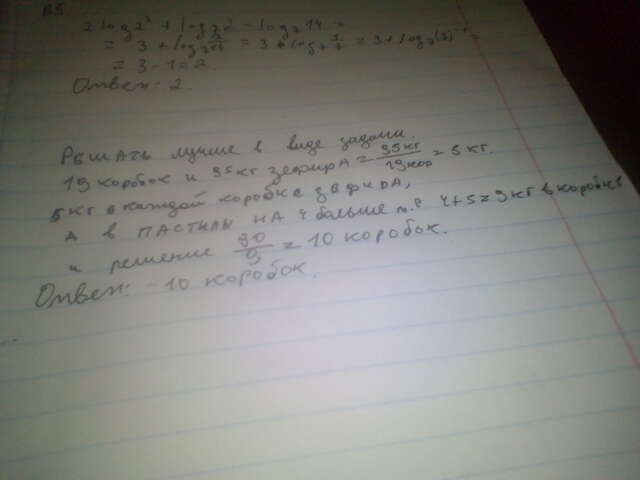 B5
2log2³ + log₇2 - log₇14 =
= 3 + log₇ 2/14 = 3 + log₇ 1/7 = 3 + log₇(7)⁻¹ =
= 3 - 1 = 2.
Ответ: 2.
Решать лучше в виде задачи.
19 коробок и 95 кг зефирА = 95кг/19кор = 5 кг.
5 кг в каждой коробке зефирА,
А в ПАСТИЛЫ НА 4 больше т.е 4+5=9 кг в коробке
и решение 90/9 = 10 коробок.
Ответ: -10 коробок.